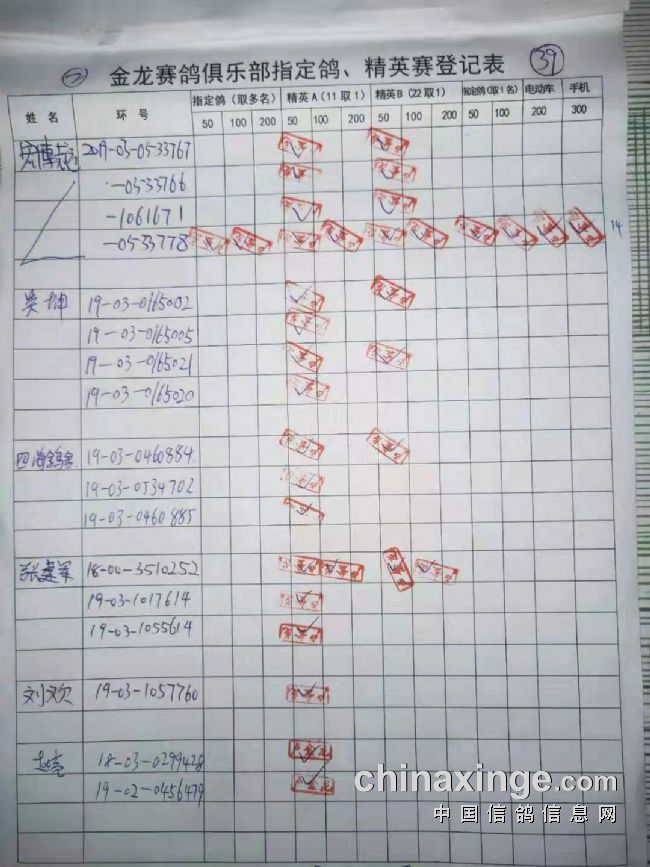 ② 金龙赛鸽俱乐部指定鸽、精英赛登记表 39
姓名 环号 指定鸽（取多名） 精英A（11取1） 精英B（22取1） 指定鸽（取1名） 电动车 手机
50 100 200 50 100 200 50 100 200 50 100 200 300
2019-03-0533767
-0533766
-1061671
-0533778 14
吴坤 19-03-0165002
19-03-0165005
19-03-0165021
19-03-0165020
四海鸽舍 19-03-0460884
19-03-0534702
19-03-0460885
张建军 18-00-3510252
19-03-1017614
19-03-1055614
刘欢 19-03-1057760
赵亮 18-03-0299428
19-02-0456479
chinaxinge.com
中国信鸽信息网